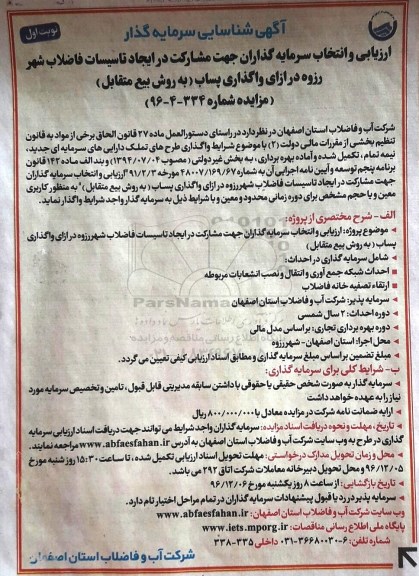 نوبت اول
آگهی شناسایی سرمایه گذار
ارزیابی و انتخاب سرمایه گذاران جهت مشارکت در ایجاد تاسیسات فاضلاب شهر
رزوه در ازای واگذاری پساب (به روش بیع متقابل)
(مزایده شماره ۳۳۴-۴-۹۶)
شرکت آب و فاضلاب استان اصفهان در نظر دارد در راستای دستورالعمل ماده ۲۷ قانون الحاق برخی از مواد به قانون
تنظیم بخشی از مقررات مالی دولت (۲) با موضوع شرایط واگذاری طرح های تملک دارایی های سرمایه ای جدید،
نیمه تمام، تکمیل شده و آماده بهره برداری، به بخش غیر دولتی (مصوب ۱۳۹۴/۰۷/۰۴) و بند الف ماده ۱۴۳ قانون
برنامه پنجم توسعه و آیین نامه اجرایی آن به شماره ۴۸۰۰۷/۱۶۹/۶۷ مورخه ۹۱/۲/۳ ارزیابی و انتخاب سرمایه گذاران
جهت مشارکت در ایجاد تاسیسات فاضلاب شهر رزوه در ازای واگذاری پساب (به روش بیع متقابل)" به منظور کاربری
معین و یا حجم مشخص برای دوره زمانی محدود و معین و با شرایط ذیل به سرمایه گذار واجد شرایط واگذار نماید.
الف - شرح مختصری از پروژه:
موضوع پروژه: ارزیابی و انتخاب سرمایه گذاران جهت مشارکت در ایجاد تاسیسات فاضلاب شهر رزوه در ازای واگذاری
پساب (به روش بیع متقابل)
شامل سرمایه گذاری در احداث:
احداث شبکه جمع آوری و انتقال و نصب انشعابات مربوطه
ارتقاء تصفیه خانه فاضلاب
سرمایه پذیر: شرکت آب و فاضلاب استان اصفهان
دوره احداث: ۲ سال شمسی
دوره بهره برداری تجاری: بر اساس مدل مالی
محل اجرا: استان اصفهان - شهر رزوه
مبلغ تضمین بر اساس مبلغ سرمایه گذاری و مطابق اسناد ارزیابی کیفی تعیین می گردد.
ب- شرایط کلی برای سرمایه گذاری:
سرمایه گذار به صورت شخص حقیقی یا حقوقی با داشتن سابقه مدیریتی قابل قبول، تامین و تخصیص سرمایه مورد
نیاز را به عهده خواهد داشت
ارایه ضمانت نامه شرکت در مزایده معادل با ۸۰۰/۰۰۰/۰۰۰ ریال
تاریخ، مهلت و نحوه دریافت اسناد مزایده: سرمایه گذاران واجد شرایط می توانند جهت دریافت اسناد ارزیابی سرمایه
گذاری در طرح به وب سایت شرکت آب و فاضلاب استان اصفهان به آدرس www.abfaesfahan.ir مراجعه نمایند.
محل و زمان تحویل مدارک درخواستی: مهلت تحویل اسناد ارزیابی تکمیل شده، تا ساعت ۱۵:۳۰ روز شنبه مورخ
۹۶/۱۲/۰۵ و محل تحویل دبیرخانه معاملات شرکت اتاق ۲۹۲ می باشد.
تاریخ بازگشایی: از ساعت ۸ روز یکشنبه مورخ ۹۶/۱۲/۰۶
سرمایه پذیر در رد یا قبول پیشنهادات سرمایه گذاران در تمام مراحل اختیار تام دارد.
وب سایت شرکت آب و فاضلاب استان اصفهان: www.abfaesfahan.ir
پایگاه ملی اطلاع رسانی مناقصات: www.iets.mporg.ir
شماره تلفن: ۶-۰۳۱-۳۶۶۸۰۰۳۰ داخلی ۳۳۵-۳۳۸
شرکت آب و فاضلاب استان اصفهان